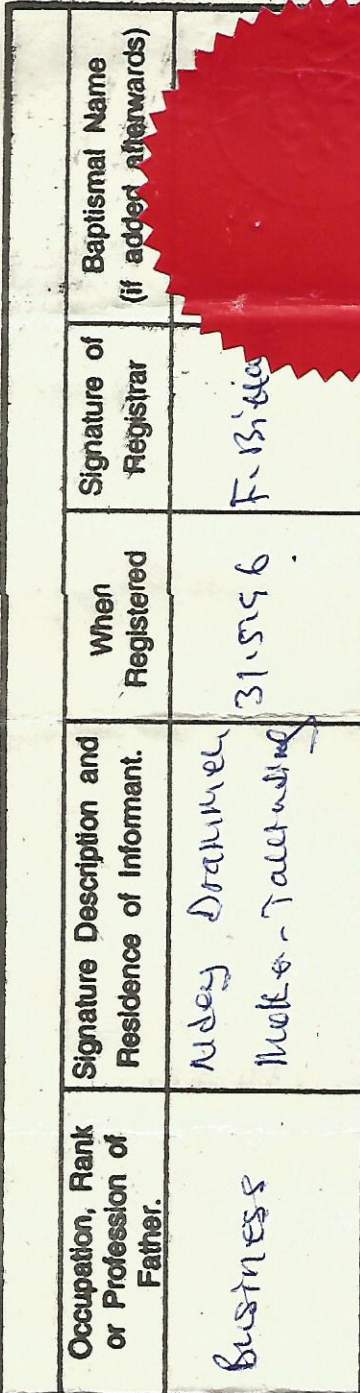 Occupation, Rank
or Profession of
Father.
Signature Description and
Residence of Informant.
When
Registered
Signature of
Registrar
Baptismal Name
(if added afterwards)
Business
Ndey Drammeh
Talinding
31.5.96
F.